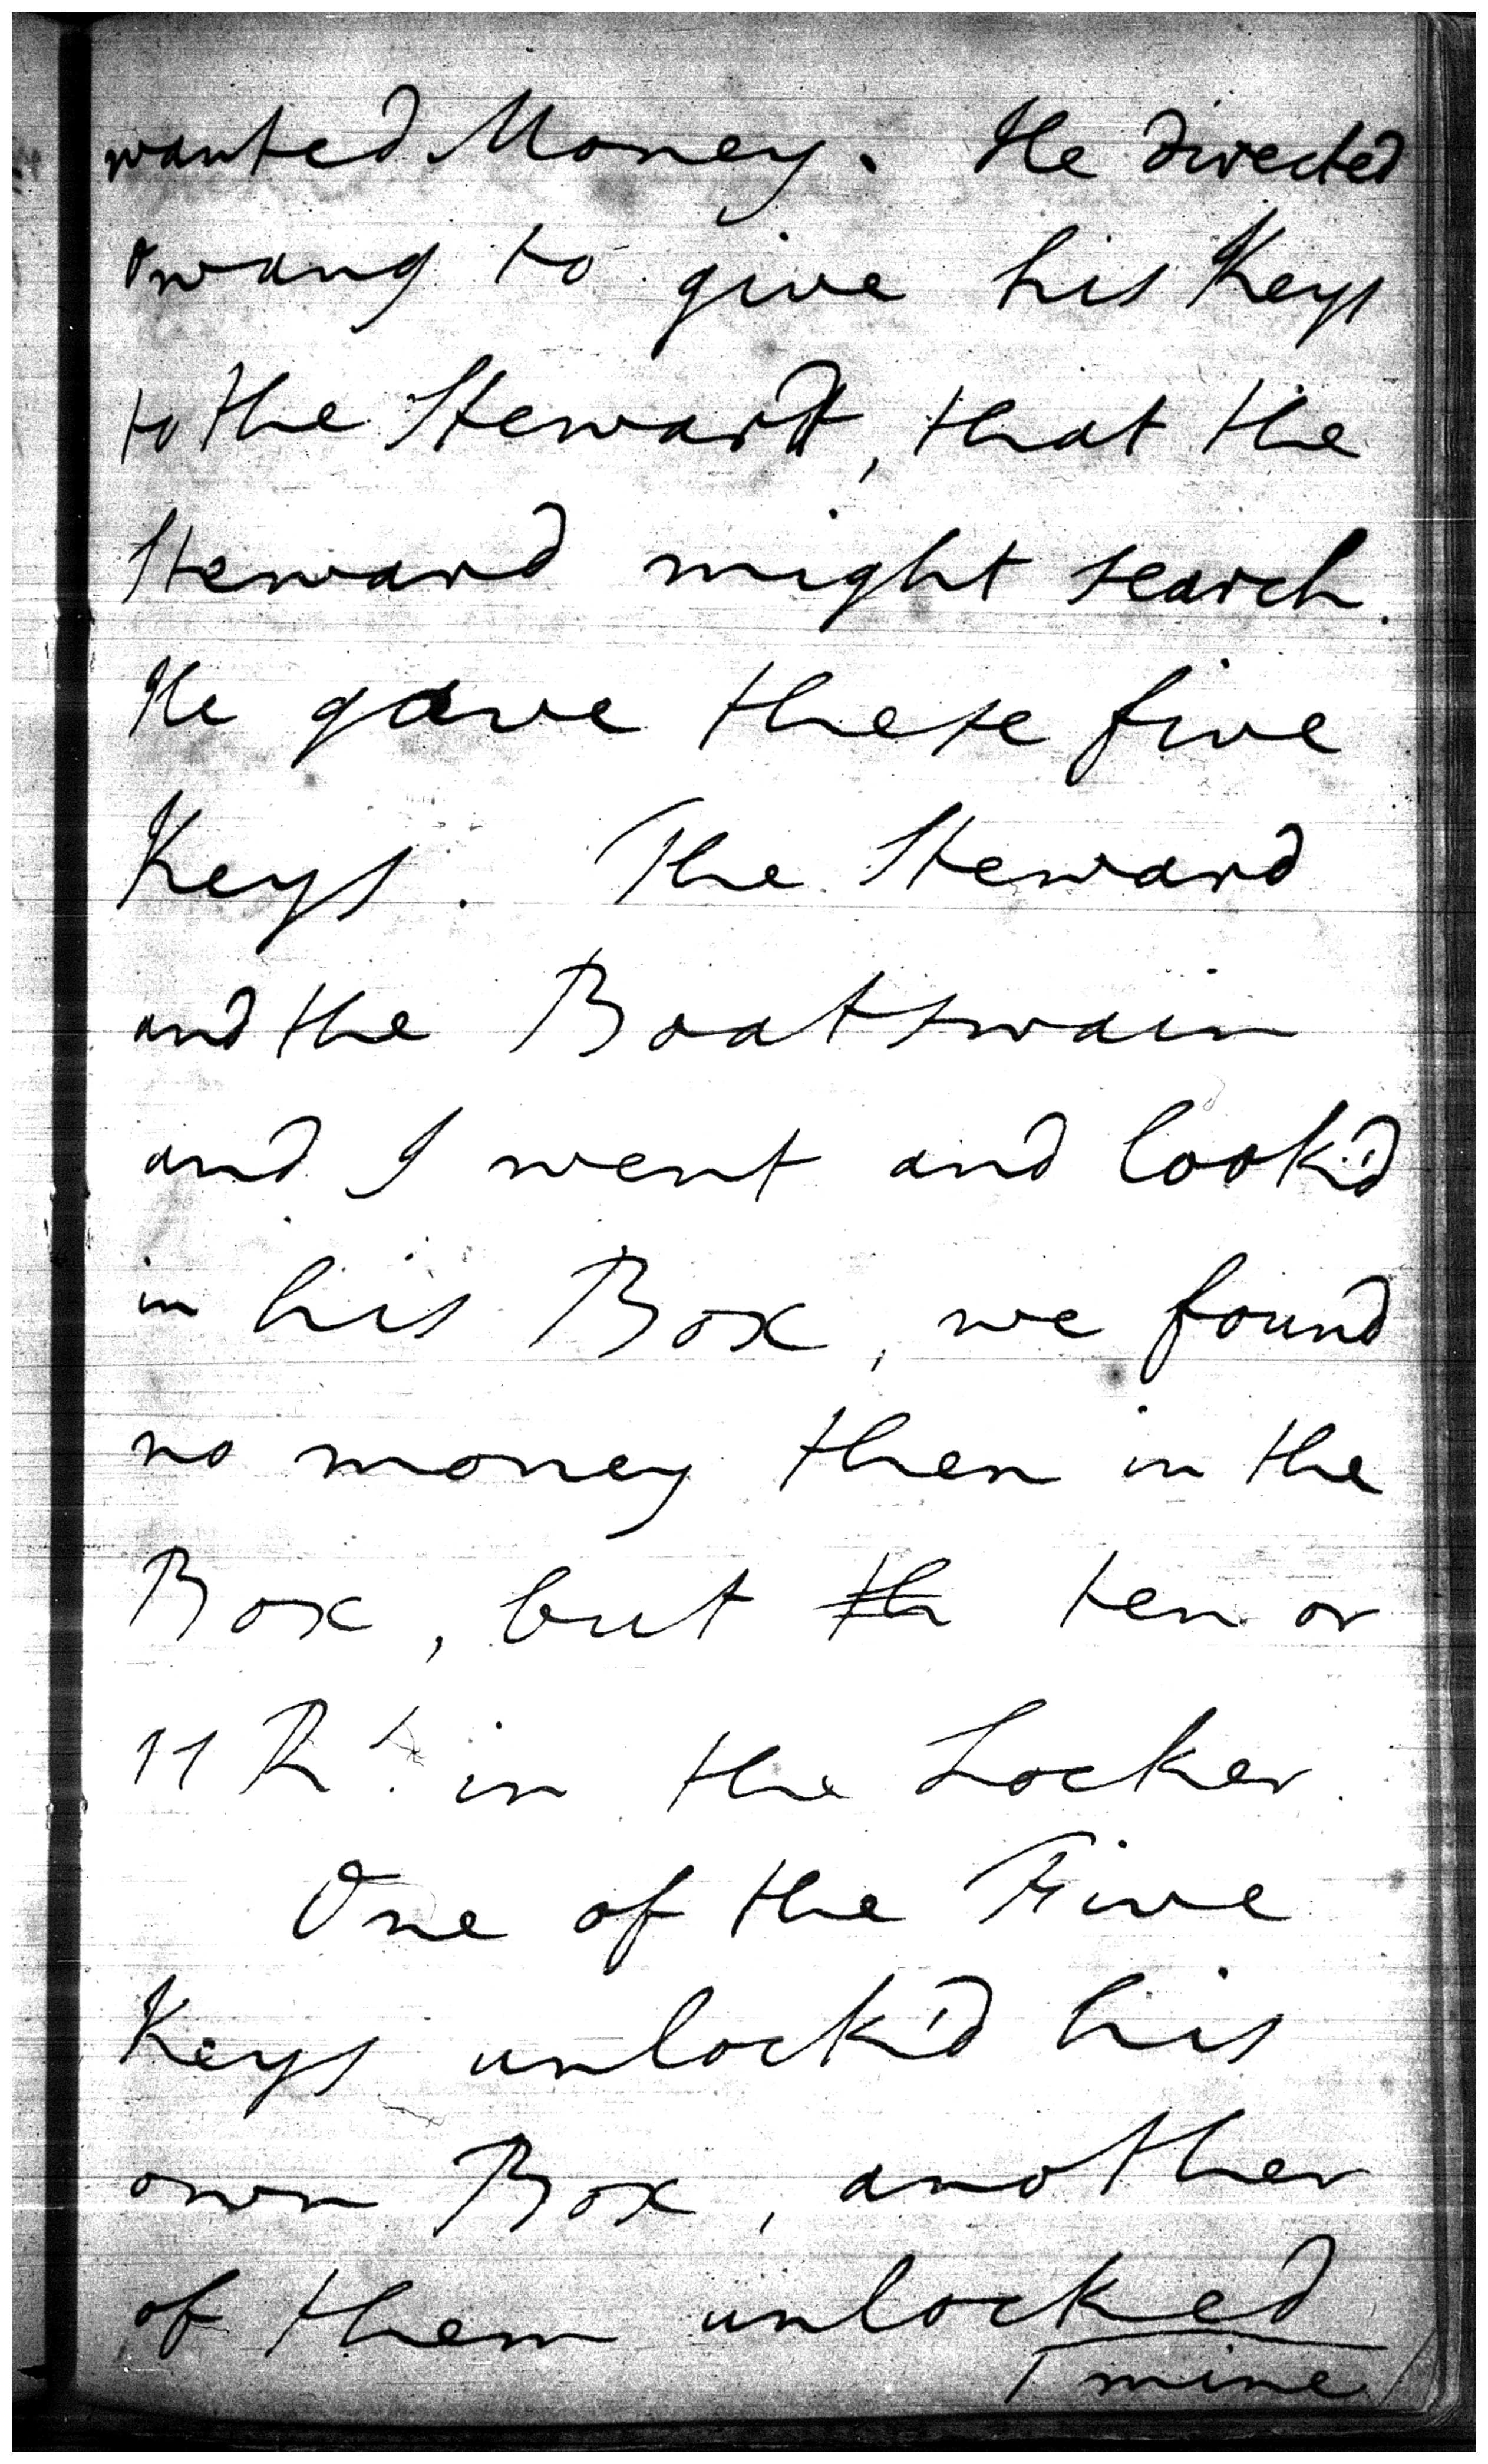 wanted Money. He directed
Owang to give his Keys
to the Steward, that the
Steward might search.
He gave these five
Keys. The Steward
and the Boatswain
and I went and look'd
in his Box, we found
no money then in the
Box, but th ten or
11 Rs. in the Locker.
One of the Five
Keys unlock'd his
own Box, another
of them unlocked
mine